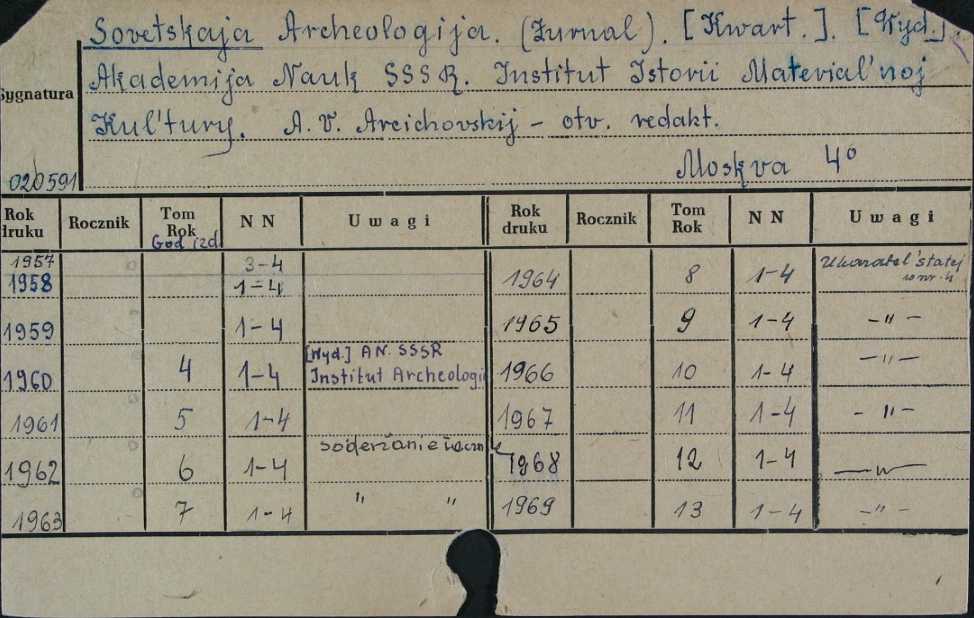 Sovetskaja Archeologija. (Žurnal). [Kwart.]. [Wyd.]
Akademija Nauk SSSR. Institut Istorii Material'noj
Sygnatura
Kul'tury. A. V. Arcichovskij – otv. redakt.
Moskva 4°
020591
Rok druku Rocznik Tom Rok God izd. NN Uwagi Rok druku Rocznik Tom Rok NN Uwagi
1957 3-4
1958 1-4 1964 8 1-4 Ukazatel' statej w nr. 4
1959 1-4 1965 9 1-4 -"-
1960 4 1-4 [Wyd.] AN. SSSR Institut Archeologi 1966 10 1-4 -"-
1961 5 1-4 1967 11 1-4 -"-
1962 6 1-4 soderžanie 1968 12 1-4 -"-
1963 7 1-4 " " 1969 13 1-4 -"-